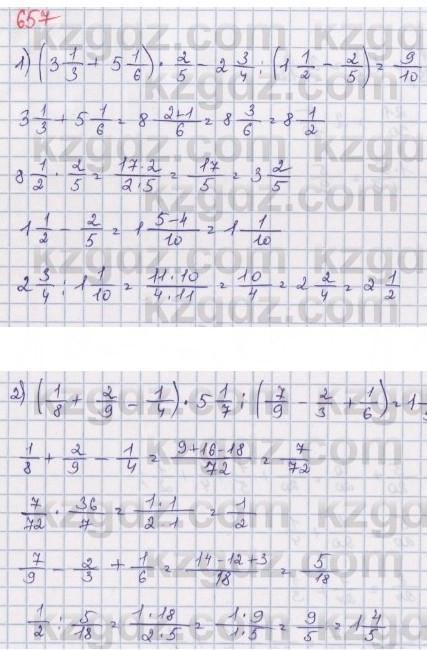 657
1) (3 1/3 + 5 1/6) · 2/5 - 2 3/4 : (1 1/2 - 2/5) = 9/10
3 1/3 + 5 1/6 = 8 2+1/6 = 8 3/6 = 8 1/2
8 1/2 · 2/5 = 17·2/2·5 = 17/5 = 3 2/5
1 1/2 - 2/5 = 1 5-4/10 = 1 1/10
2 3/4 : 1 1/10 = 11·10/4·11 = 10/4 = 2 2/4 = 2 1/2
2) (1/8 + 2/9 - 1/4) · 5 1/7 : (7/9 - 2/3 + 1/6) = 1
1/8 + 2/9 - 1/4 = 9+16-18/72 = 7/72
7/72 · 36/7 = 1·1/2·1 = 1/2
7/9 - 2/3 + 1/6 = 14-12+3/18 = 5/18
1/2 : 5/18 = 1·18/2·5 = 1·9/1·5 = 9/5 = 1 4/5
kzgdz.com